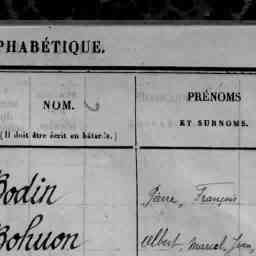 PHABÉTIQUE.
NOM.
(Il doit être écrit en bâtarde.)
PRÉNOMS
ET SURNOMS.
Bodin Pierre, François
Bohuon Albert, Marcel, Jean,